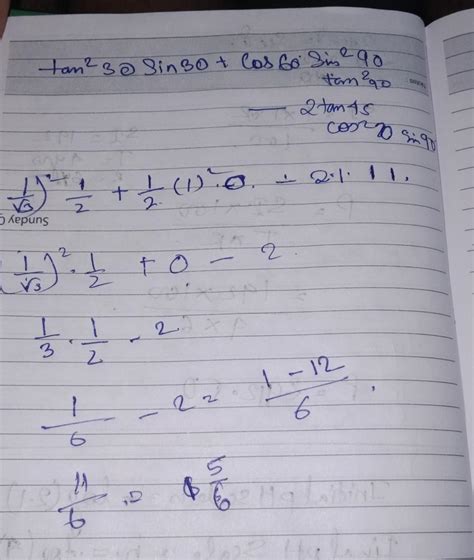 tan²30 sin30 + cos60 sin²90
tan²90
— 2tan45
cos²0 sin90
(1/√3)² 1/2 + 1/2 (1)²·0. - 2·1·11.
Sunday
(1/√3)²·1/2 + 0 - 2
1/3 · 1/2 - 2
1/6 - 2 = (1-12)/6.
11/6 = 5/6